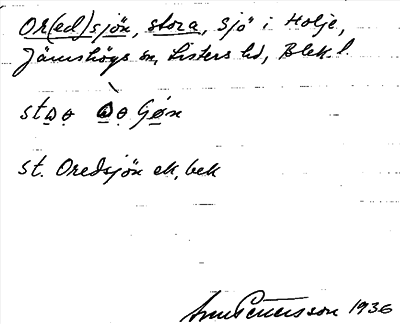 Or(ed)sjön, stora, sjö i Holje,
Jämshögs sn, Listers hd, Blek. l.
st. Oredsjön ek, bek
Pettersson 1936